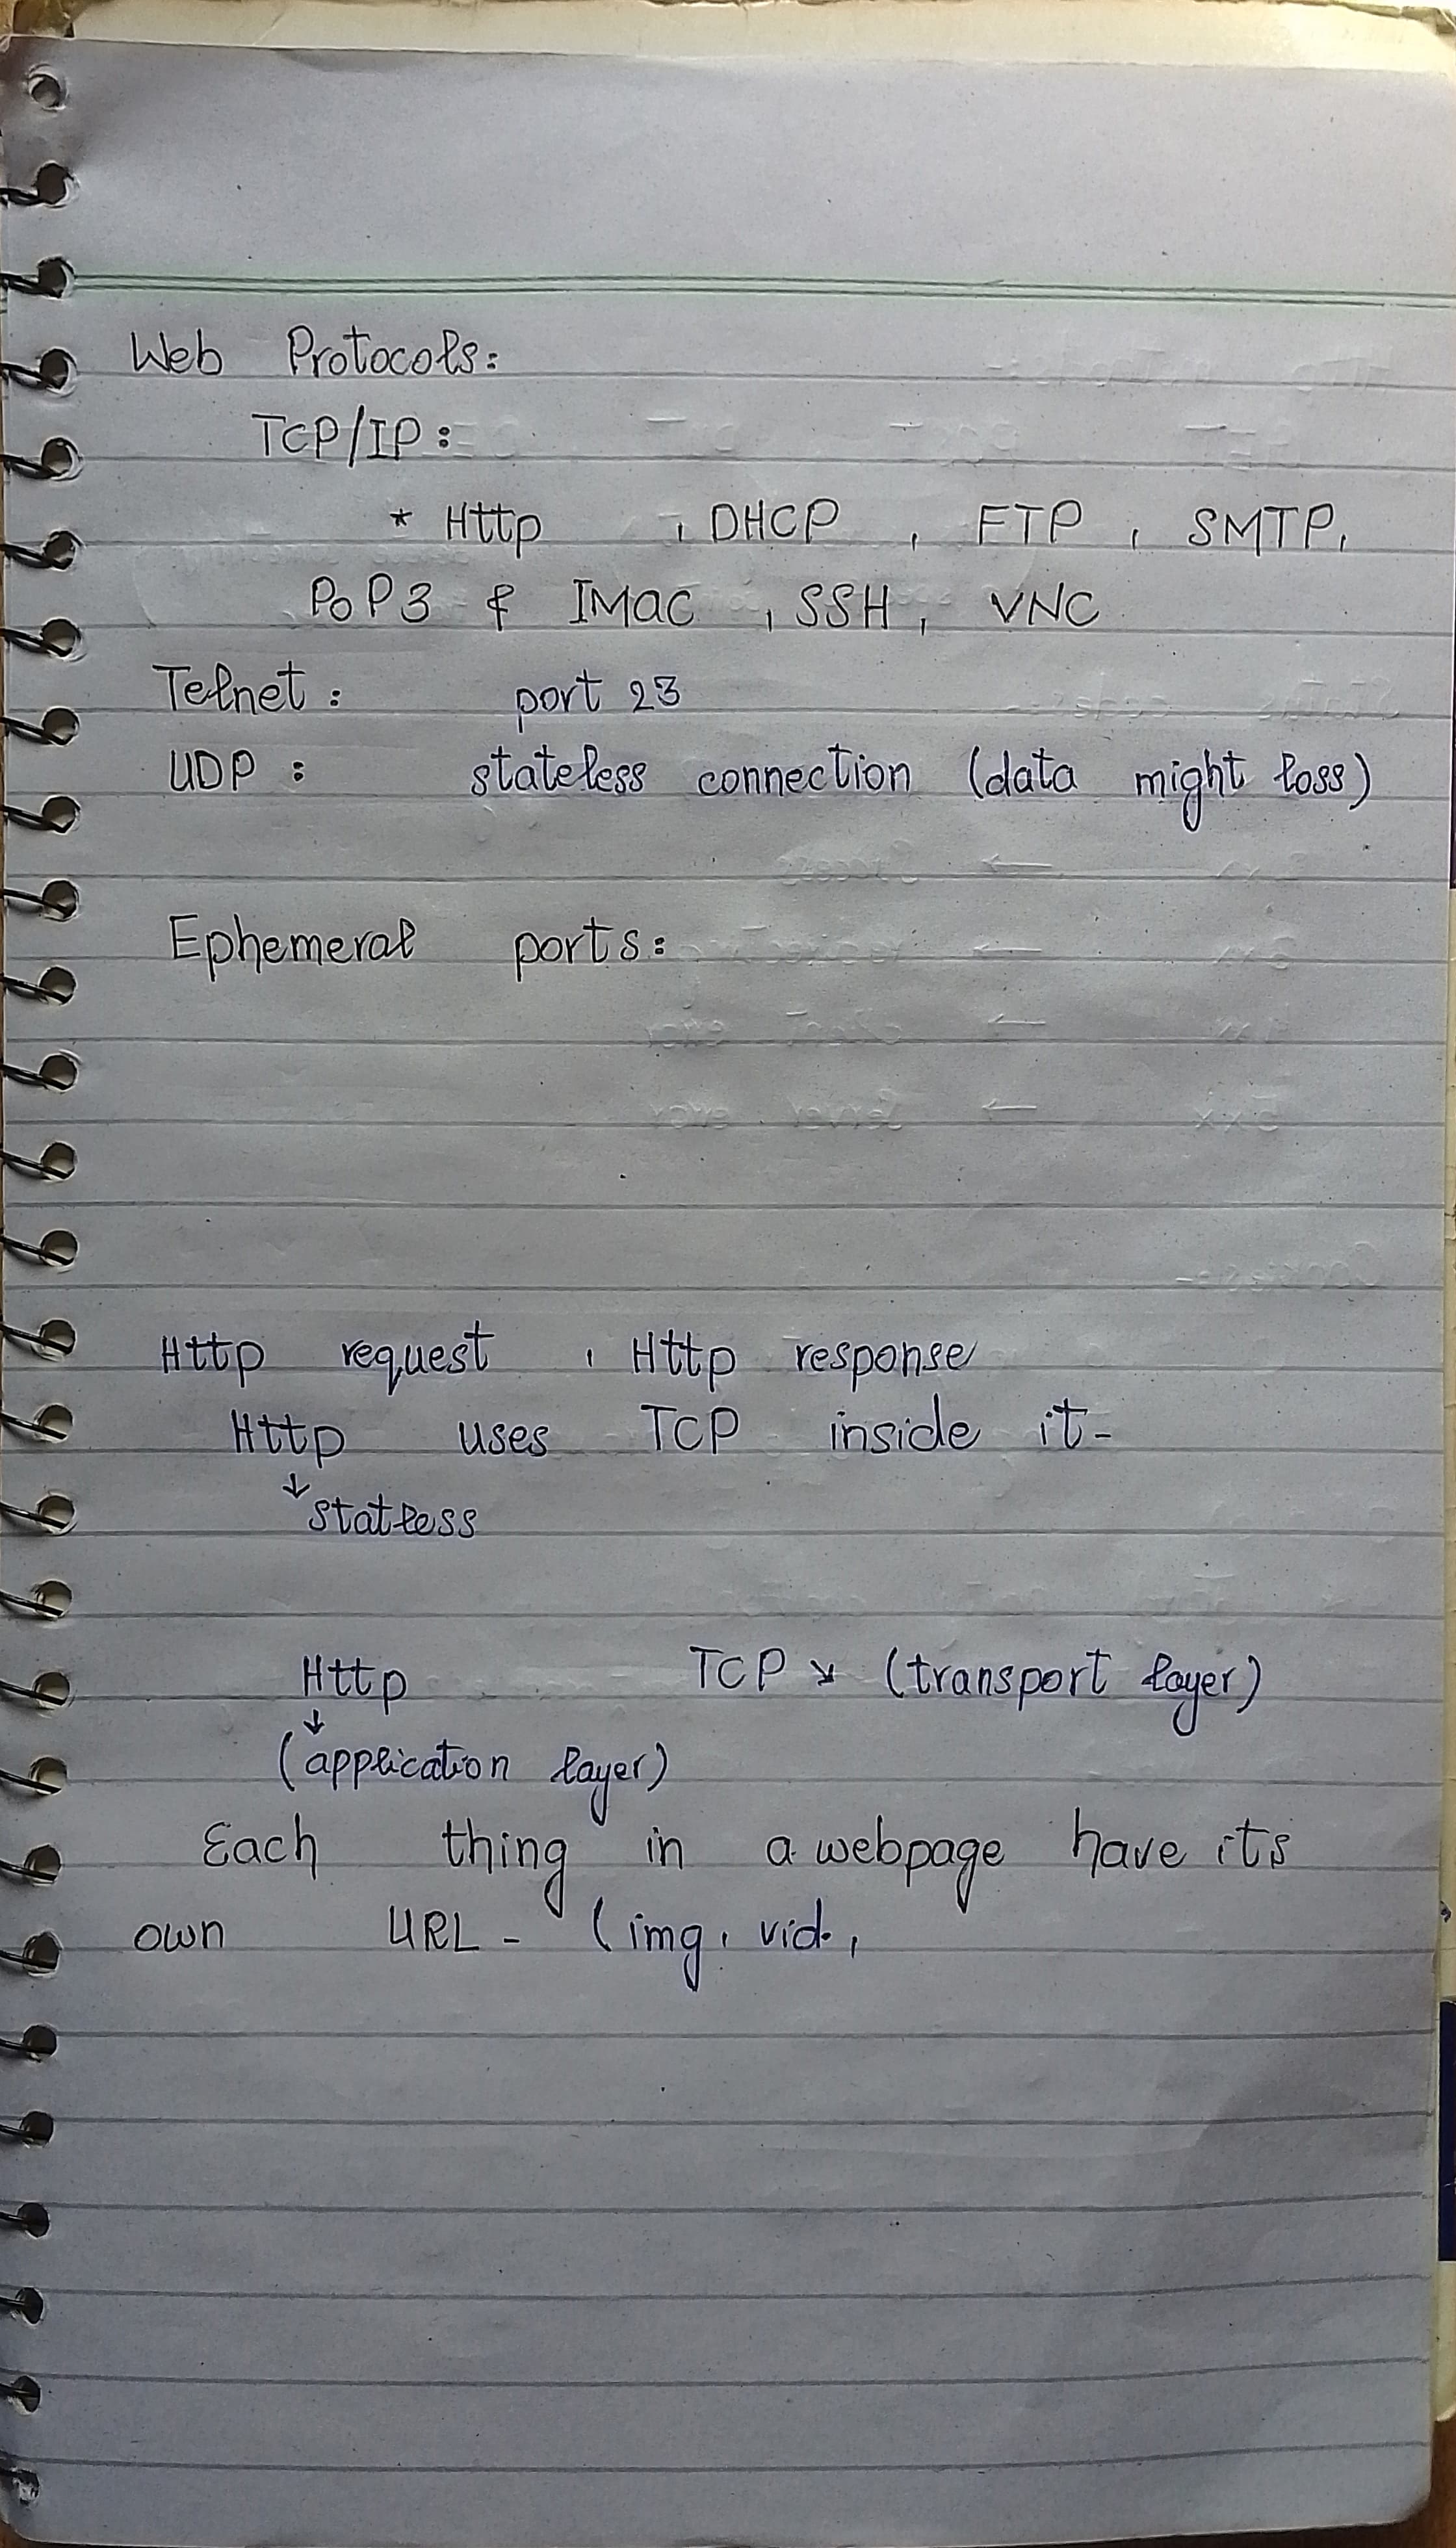 Web Protocols:
TCP/IP:
* Http , DHCP , FTP , SMTP,
PoP3 & IMAC , SSH, VNC
Telnet: port 23
UDP : stateless connection (data might loss)
Ephemeral ports:
Http request , Http response
Http uses TCP inside it-
↓ statless
Http TCP ↘ (transport layer)
↓
(application layer)
Each thing in a webpage have its
own URL - (img, vid,